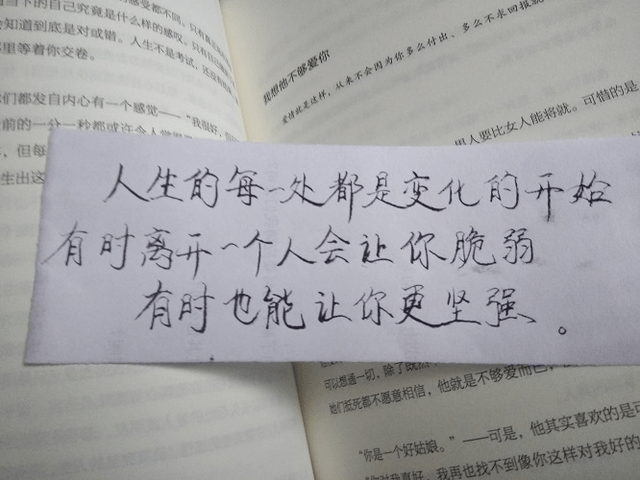 当下的自己究竟是什么样的感叹,只有
会知道到底是对或错。人生不是考试,
那里等着你交卷。
们都发自内心有一个感觉——“我很好,
前的一分一秒都或许令人
,但每
生出这
我想他不够爱你
爱情就是这样,从来不会因为你多么付出、多么不求回报就
男人要比女人能将就。可惜的是
人生的每一处都是变化的开始
有时离开一个人会让你脆弱
有时也能让你更坚强。
可以想通一切,除了既然
她们抵死都不愿意相信,他就是不够爱而已,
“你是一个好姑娘。”——可是,他其实喜欢的是可
“你对我真好,我再也找不到像你这样对我好的